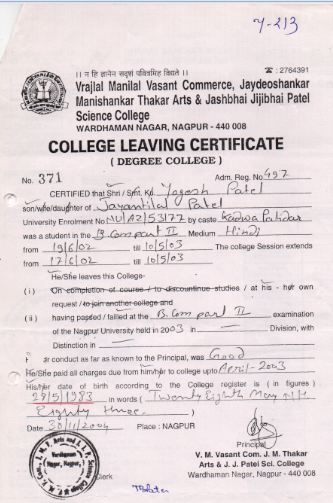 Y-213
।। न हि ज्ञानेन सदृशं पवित्रमिह विद्यते ।।
☎ : 2764391
Vrajlal Manilal Vasant Commerce, Jaydeoshanker
Manishankar Thakar Arts & Jashbhai Jijibhai Patel
Science College
WARDHAMAN NAGAR, NAGPUR - 440 008
COLLEGE LEAVING CERTIFICATE
( DEGREE COLLEGE )
No. 371 Adm. Reg. No 497
CERTIFIED that Shri / Smt. Ku. Yogesh Patel
son/wife/daughter of Jayantilal Patel
University Enrolment No NU/A2/53177 by caste Kadwa Patidar
was a student in the B.Com part II Medium Hindi
from 19/6/02 till 10/5/03 The college Session extends
from 17/6/02 till 10/5/03
He/She leaves this College-
( i ) On completion of course / to discountinue studies / at his - her own
request / to join another college and
( ii ) having passed / failed at the B.Com part II examination
of the Nagpur University held in 2003 in Division, with
Distinction in
conduct as far as known to the Principal, was Good
He/She paid all charges due from him/her to college upto April-2003
His/her date of birth according to the College register is ( in figures )
28/5/1983 in words ( Twenty Eighth May
Eighty three. )
Date 30/11/2004 Place : NAGPUR
Principal
V. M. Vasant Com. J. M. Thakar
Arts & J. J. Patel Sci. College
Wardhaman Nagar, Nagpur - 440 008.
Clerk
Wardhaman
Nagar, Nagpur.